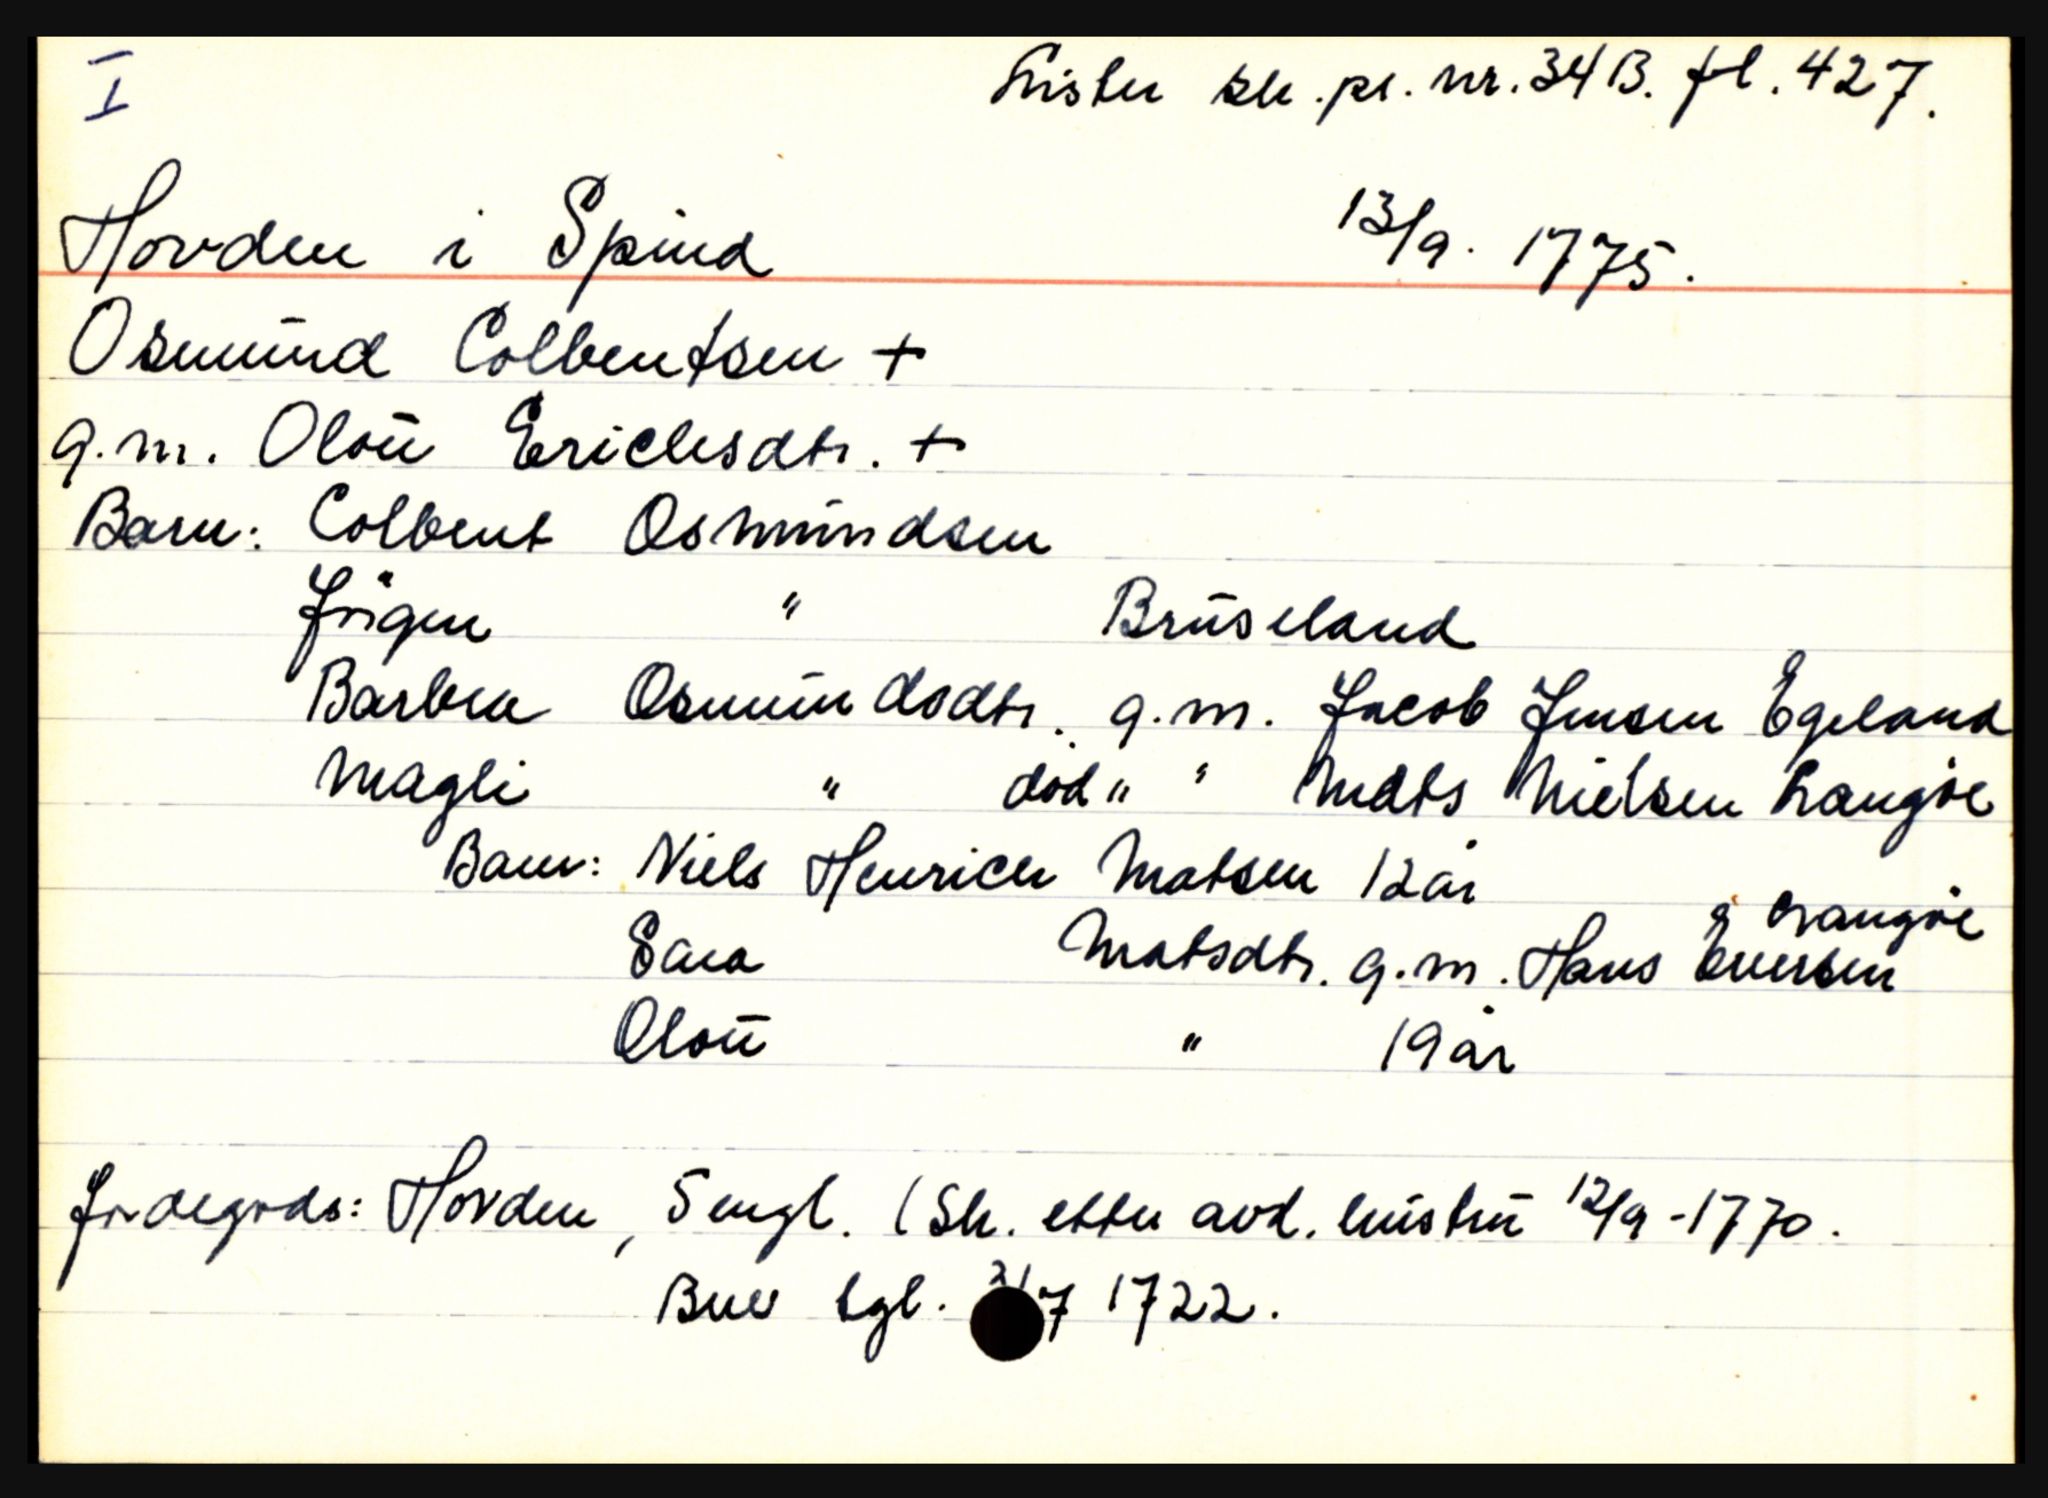 I
Lister sk. pr. nr. 34 B. fl. 427.
Hovden i Spind 13/9. 1775.
Osmund Colbentsen +
g.m. Olou Erichsdtr. +
Barn: Colbent Osmundsen
Jörgen " Bruseland
Barbra Osmundsdtr. g.m. Jacob Jensen Egeland
Magli " död " " Mats Nielsen Langöe
Barn: Niels Henrich Matsen 12 år
Langöe
Sara Matsdtr. g.m. Hans Eversen
Olou " 19 år
Jordegods: Hovden, 5 engl. (Sk. etter avd. hustru 12/9-1770.
Brev tgl. 7 1722.